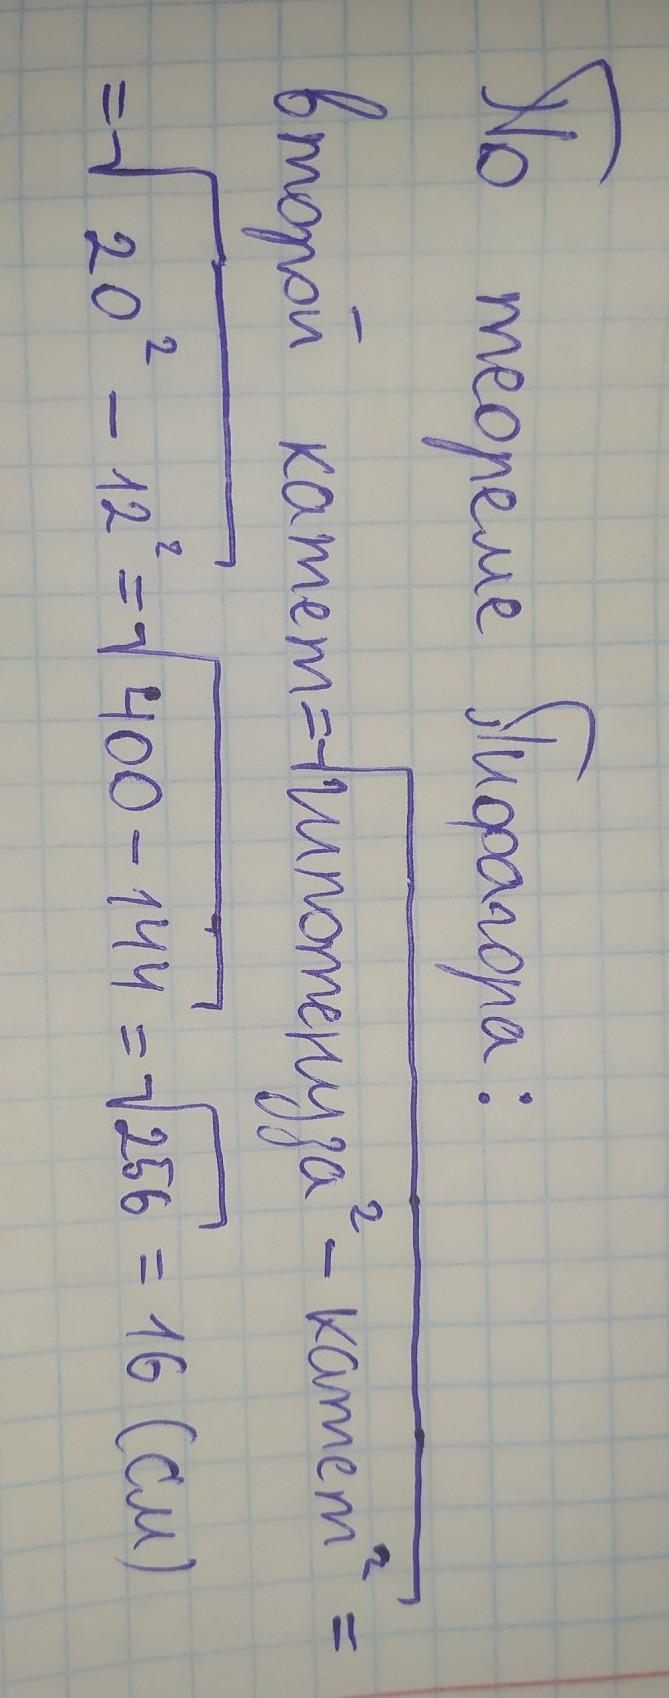 По теореме Пифагора:
второй катет=√гипотенуза² - катет² =
=√20² - 12² =√400 - 144 = √256 = 16 (см)